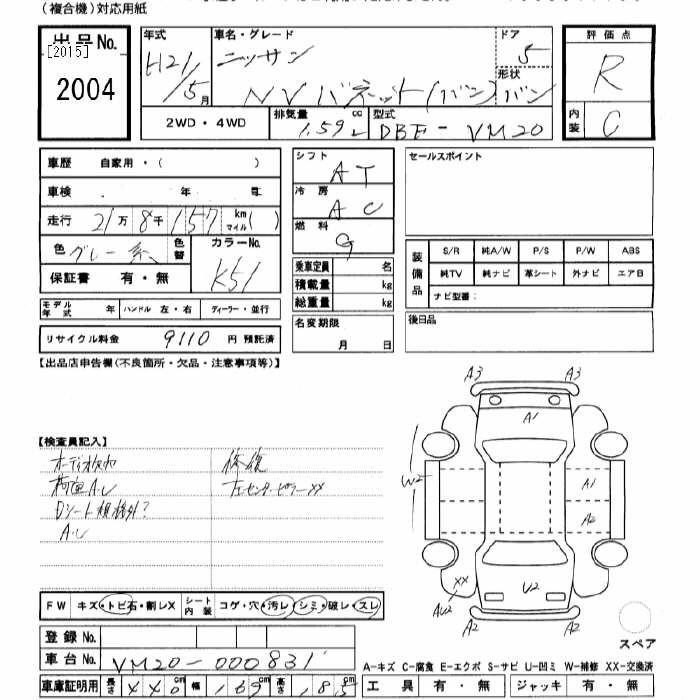 (複合機)対応用紙
出品No.
[2015]
2004
年式
H21/5月
車名・グレード
ニッサン
NVバネット(バン)
ドア
5
形状
バン
評価点
R
内装
C
2WD・4WD
排気量
1.59
cc
L
型式
DBF-VM20
車歴 自家用・( )
車検 . 年 . 月
走行 21万8千157km マイル( )
色 グレー系
色替
カラーNo.
K51
保証書 有・無
モデル年式 年 ハンドル 左・右 ディーラー・並行
リサイクル料金 9110 円 預託済
シフト
AT
冷房
AC
燃料
G
乗車定員 名
積載量 kg
総重量 kg
名変期限
月 日
セールスポイント
装備品
S/R 純A/W P/S P/W ABS
純TV 純ナビ 革シート 外ナビ エアB
ナビ型番:
後日品
【出品店申告欄(不良箇所・欠品・注意事項等)】
【検査員記入】
オーディオ欠品
荷室A・U
Dシート規格外?
A・U
修復
左センターピラーXX
A3 A3
A1
W2
A1
A2
XX
AU2
U2
A2 A2
スペア
FW キズ・トビ石・割レX シート内装 コゲ・穴・汚レ・シミ・破レ・スレ
登録No.
車台No. VM20-000831
車庫証明用 長さ 440cm 幅 169cm 高さ 185cm
A-キズ C-腐食 E-エクボ S-サビ U-凹ミ W-補修 XX-交換済
工具 有・無 ジャッキ 有・無